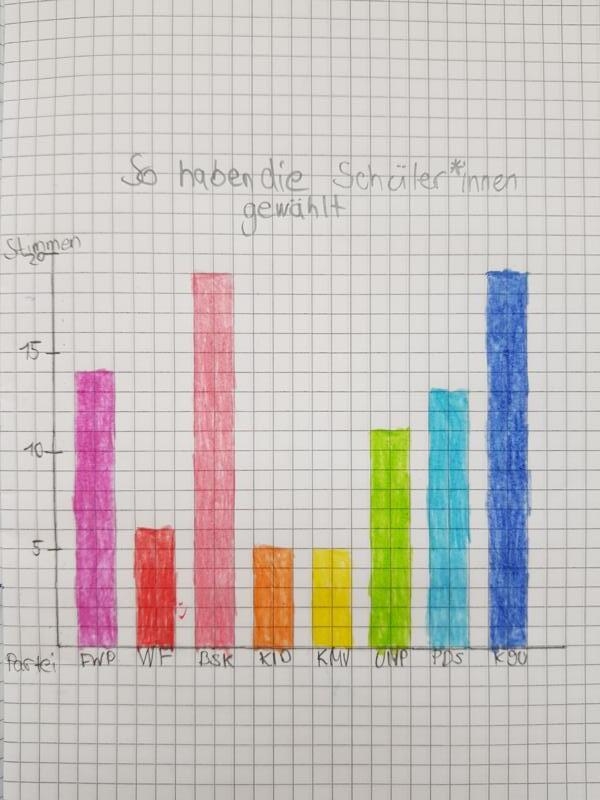 So haben die Schüler*innen
gewählt
Stimmen
20
15
10
5
Partei FWP WF BSK KID KMV UVP PDS KSU